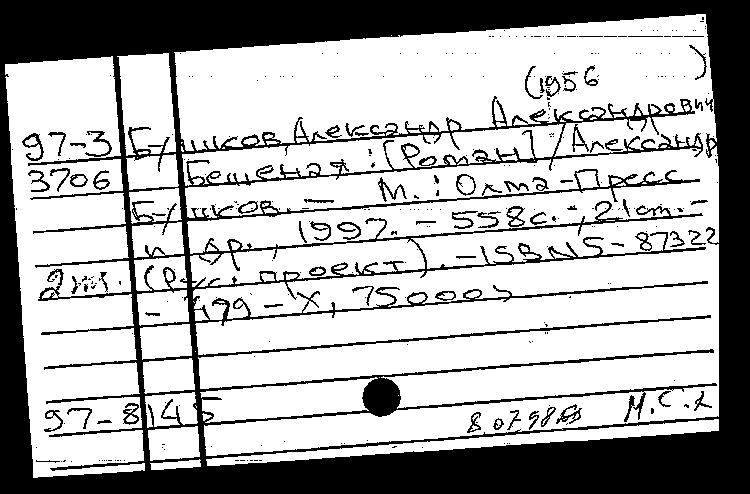 (1956 )
97-3 Бушков, Александр Александрович
3706 Бешеная : [Роман] / Александр
Бушков. — М. : Олма-Пресс
и др., 1997. - 558с. ; 21см. -
2 т. (Рус. проект). - ISBN 5-87322
- 479 - X, 75000э
97-8145
8.07.98 М.С.Л